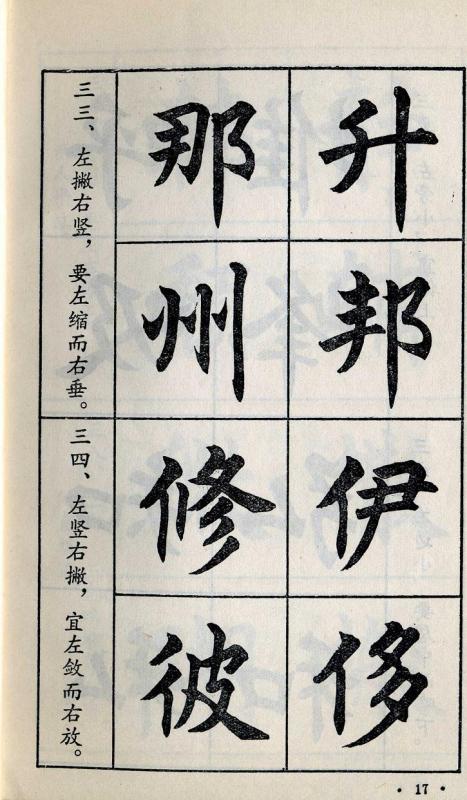 三三、左撇右竖，要左缩而右垂。
升
那
邦
州
三四、左竖右撇，宜左敛而右放。
伊
修
侈
彼
·17·